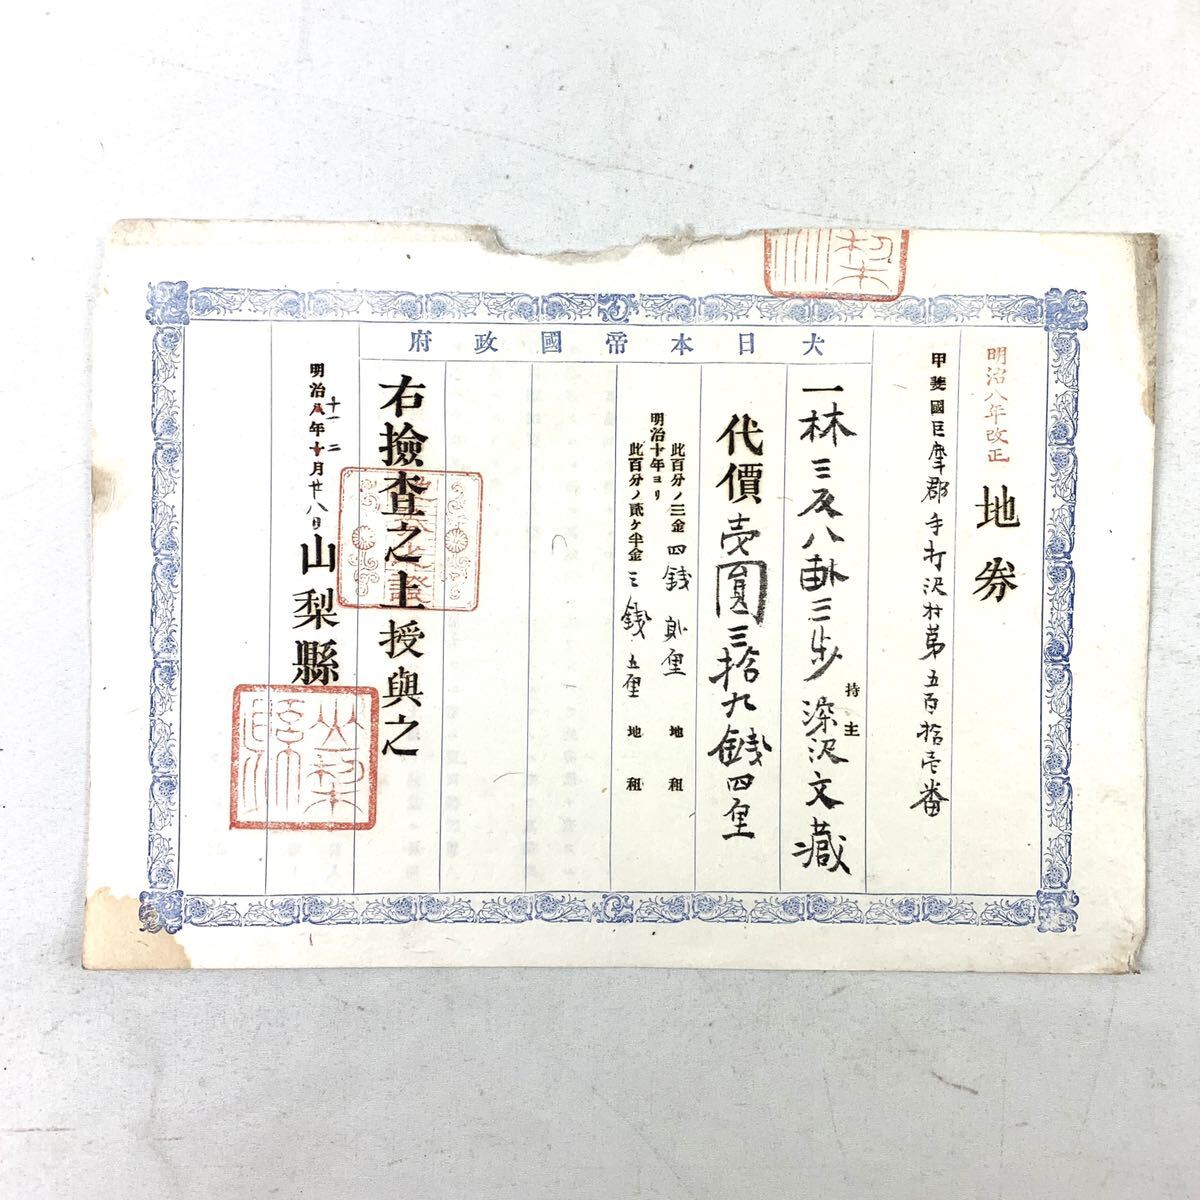 大日本帝國政府
明治八年改正
地券
甲斐國巨摩郡手打沢村第五百拾壱番
一林三反八畝三歩
持主 深沢文藏
代價壱圓三拾九錢四厘
此百分ノ三金四錢貳厘 地租
明治十年ヨリ
此百分ノ貳ケ半金三錢五厘 地租
右撿査之上授與之
明治八年十月廿八日
十一 二
山梨縣